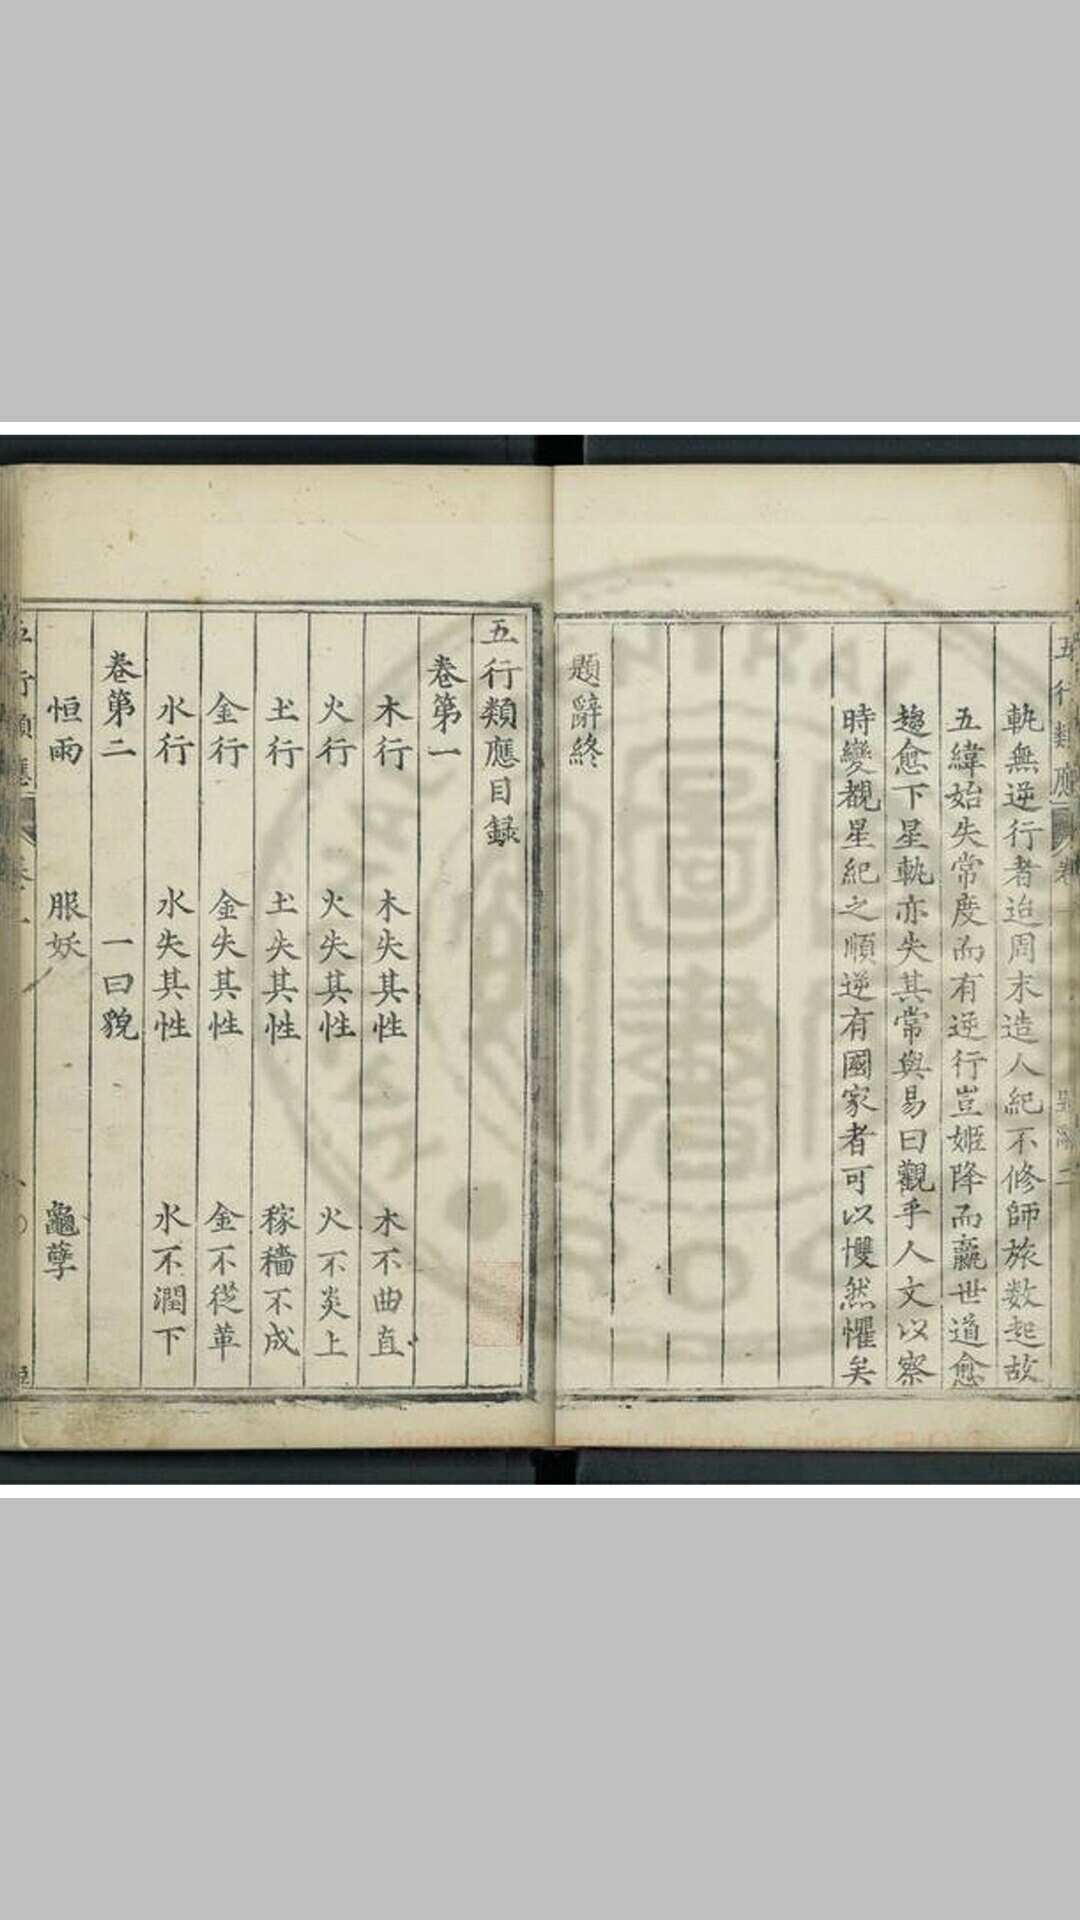 軌無逆行者迨周末造人紀不修師旅数起故
五緯始失常度而有逆行豈姬降而嬴世道愈
趨愈下星軌亦失其常與易曰觀乎人文以察
時變覩星紀之順逆有國家者可以戄然懼矣
題辭終
五行類應目録
卷第一
木行 木失其性 木不曲直
火行 火失其性 火不炎上
土行 土失其性 稼穡不成
金行 金失其性 金不從革
水行 水失其性 水不潤下
卷第二 一曰貌
恒雨 服妖 龜孽